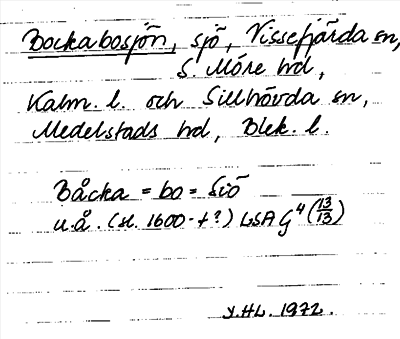 Bockabosjön, sjö, Vissefjärda sn,
S. Möre hd,
Kalm. l. och Sillhövda sn,
Medelstads hd, Blek. l.
Båcka = bo = Siö
u.å. (sl. 1600-t?) LSA G⁴ (13/13)
Y.HL. 1972.